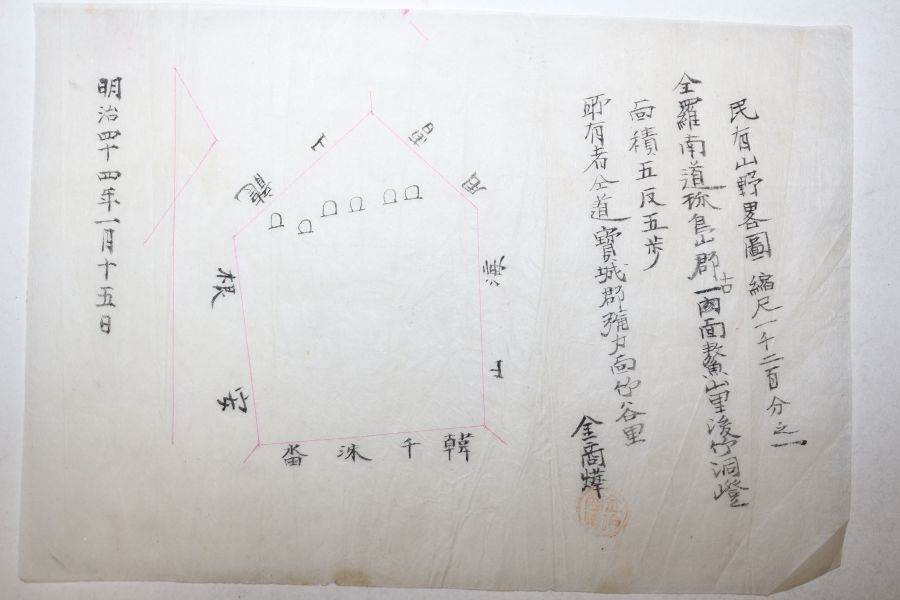 民有山野畧圖 縮尺一千二百分之一
全羅南道 山郡古 內面鰲山里後竹洞嶝
面積五反五步
所有者仝道寶城郡 面竹谷里
金商燁
安
根
龍
下
畓
洙
千
韓
明治四十四年一月十五日